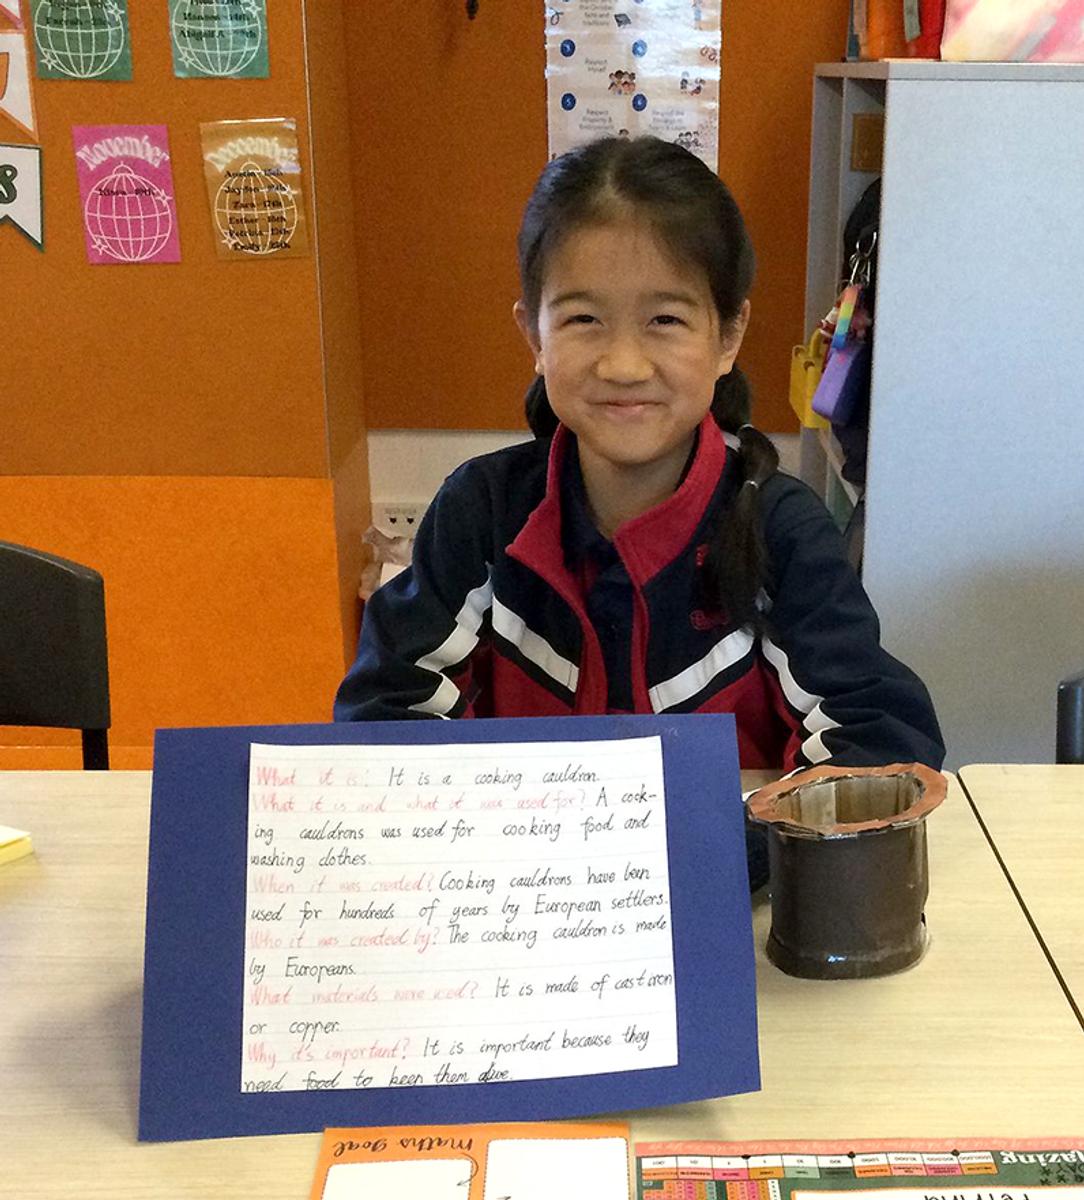 November
December
Zara 17th
Respect Myself
Respect Property & Environment
What it is: It is a cooking cauldron.
What it is and what it was used for? A cook-
ing cauldrons was used for cooking food and
washing clothes.
When it was created? Cooking cauldrons have been
used for hundreds of years by European settlers.
Who it was created by? The cooking cauldron is made
by Europeans.
What materials were used? It is made of cast iron
or copper.
Why it's important? It is important because they
need food to keep them alive.
Maths Goal